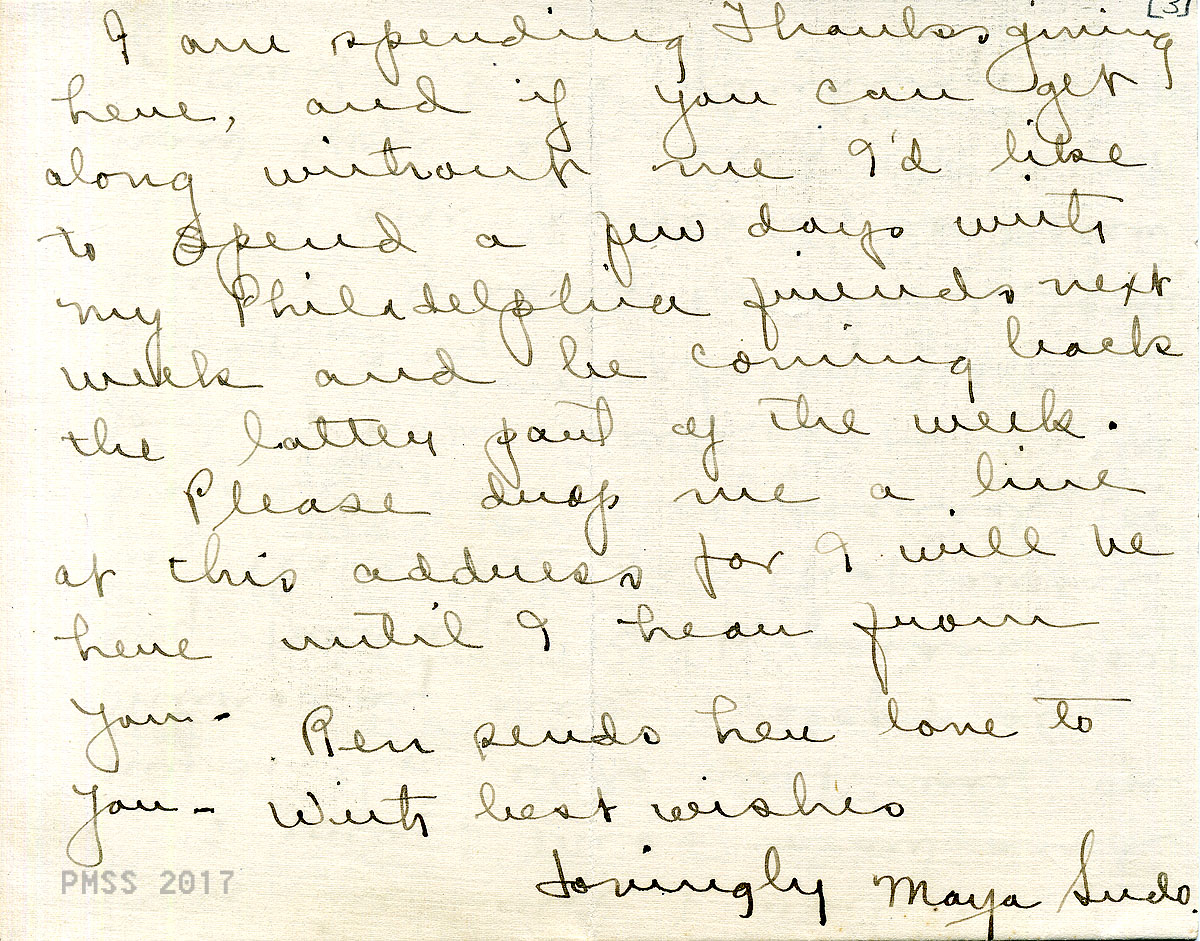 [3]
I am spending Thanksgiving
here, and if you can get
along without me I'd like
to spend a few days with
my Philadelphia friends next
week and be coming back
the latter part of the week.
Please drop me a line
at this address for I will be
here until I hear from
you - Ren sends her love to
you - With best wishes
Lovingly Maya Sudo.
PMSS 2017